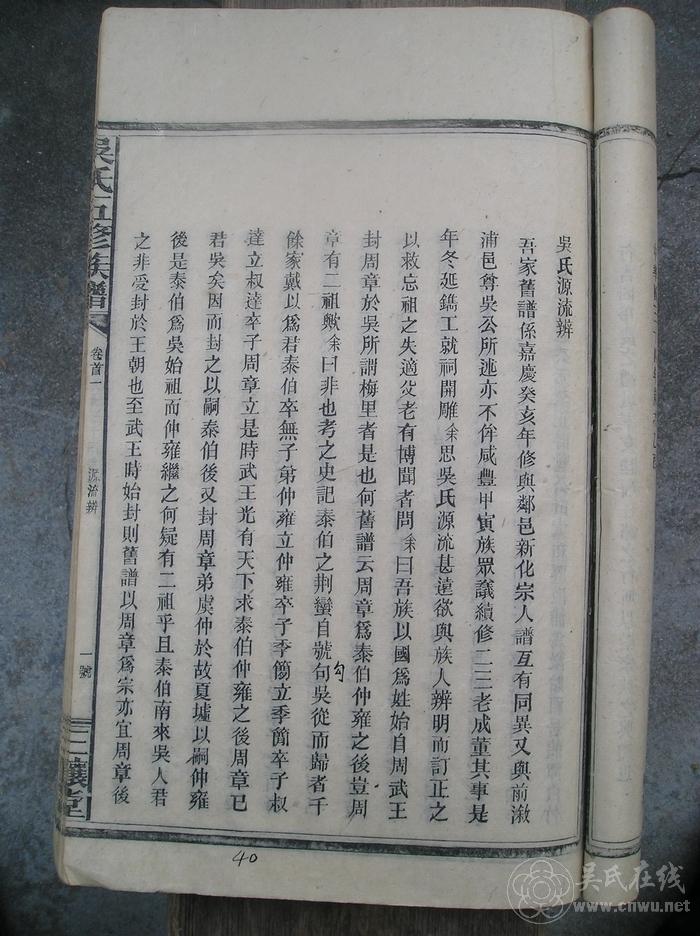 吳氏源流辨
吾家舊譜係嘉慶癸亥年修與鄰邑新化宗人譜互有同異又與前漵
浦邑尊吳公所述亦不侔咸豐甲寅族眾議續修二三老成董其事是
年冬延鐫工就祠開雕余思吳氏源流甚遠欲與族人辨明而訂正之
以救忘祖之失適父老有博聞者問余曰吾族以國爲姓始自周武王
封周章於吳所謂梅里者是也何舊譜云周章爲泰伯仲雍之後豈周
章有二祖歟余曰非也考之史記泰伯之荆蠻自號句吳從而歸者千
勾
餘家戴以爲君泰伯卒無子弟仲雍立仲雍卒子季簡立季簡卒子叔
達立叔達卒子周章立是時武王光有天下求泰伯仲雍之後周章已
君吳矣因而封之以嗣泰伯後又封周章弟虞仲於故夏墟以嗣仲雍
後是泰伯爲吳始祖而仲雍繼之何疑有二祖乎且泰伯南來吳人君
之非受封於王朝也至武王時始封則舊譜以周章爲宗亦宜周章後
吳氏五修族譜
卷首一
源流辨
一號
三讓堂
40
吴氏在线
www.cnwu.net